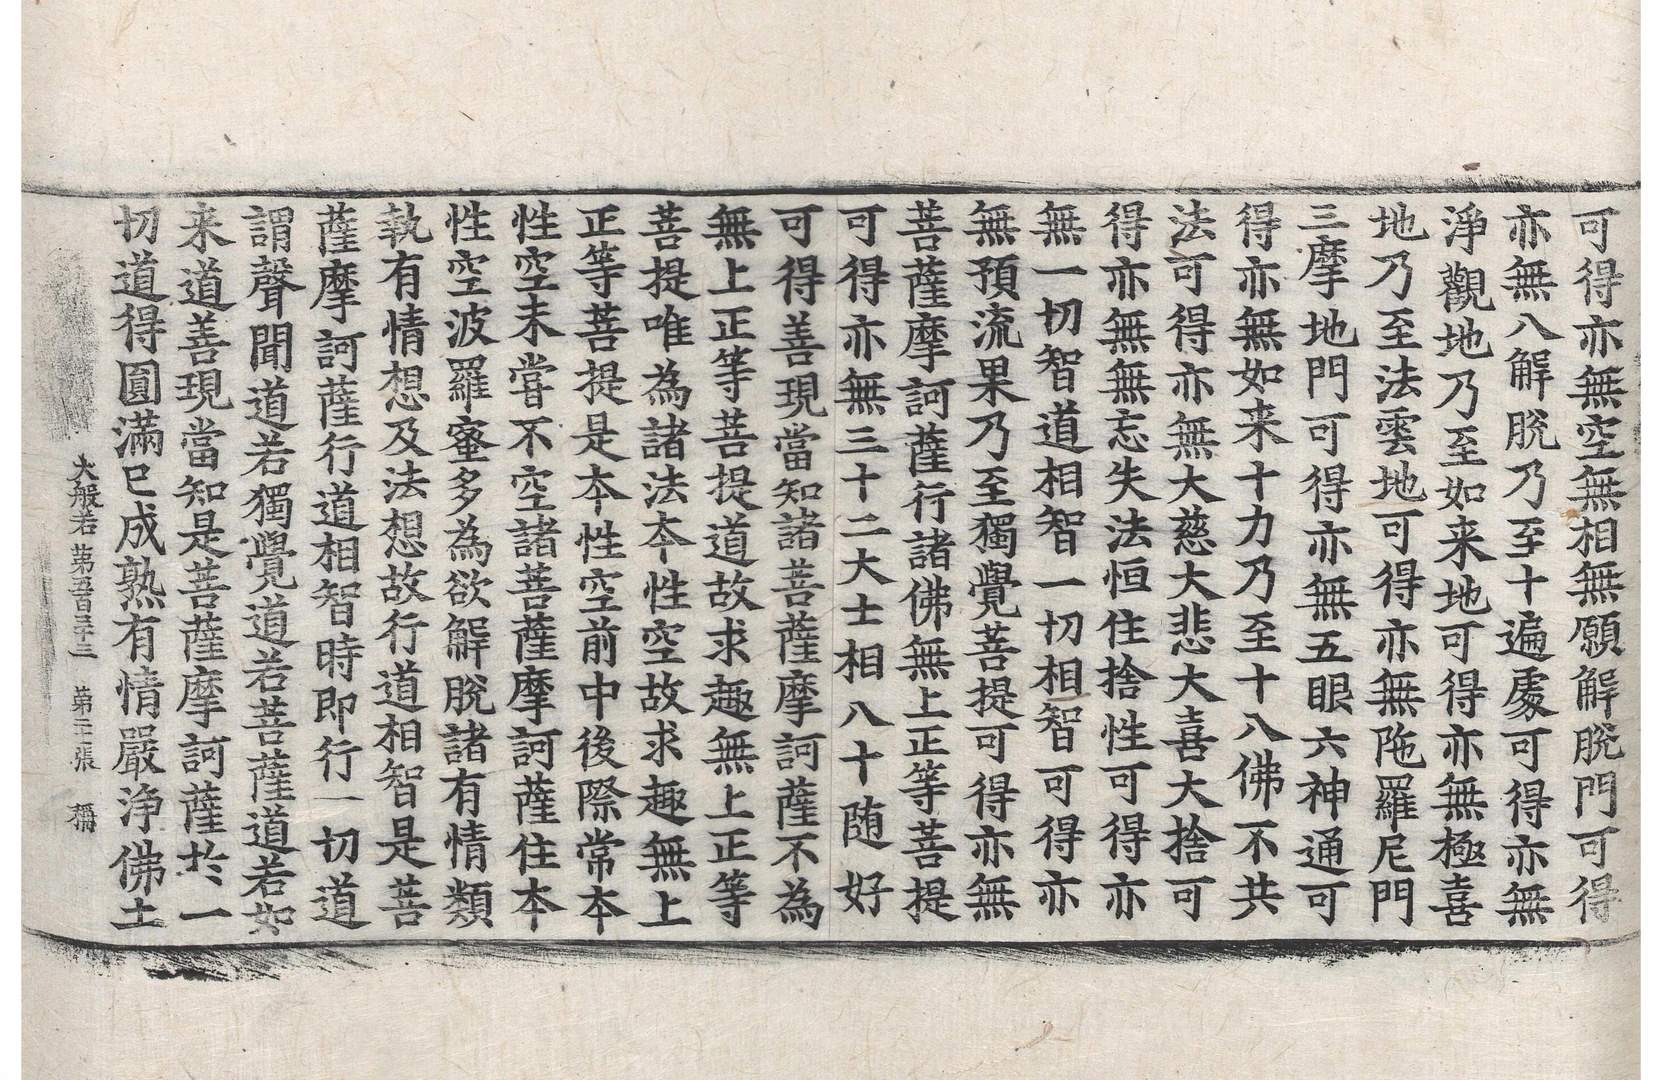 可得亦無空無相無願解脫門可得
亦無八解脫乃至十遍處可得亦無
淨觀地乃至如来地可得亦無極喜
地乃至法雲地可得亦無陁羅尼門
三摩地門可得亦無五眼六神通可
得亦無如来十力乃至十八佛不共
法可得亦無大慈大悲大喜大捨可
得亦無無忘失法恒住捨性可得亦
無一切智道相智一切相智可得亦
無預流果乃至獨覺菩提可得亦無
菩薩摩訶薩行諸佛無上正等菩提
可得亦無三十二大士相八十随好
可得善現當知諸菩薩摩訶薩不為
無上正等菩提道故求趣無上正等
菩提唯為諸法本性空故求趣無上
正等菩提是本性空前中後際常本
性空未嘗不空諸菩薩摩訶薩住本
性空波羅蜜多為欲解脫諸有情類
執有情想及法想故行道相智是菩
薩摩訶薩行道相智時即行一切道
謂聲聞道若獨覺道若菩薩道若如
来道善現當知是菩薩摩訶薩於一
切道得圓滿已成熟有情嚴淨佛土
大般若 第五百三十三 第二十張 稱